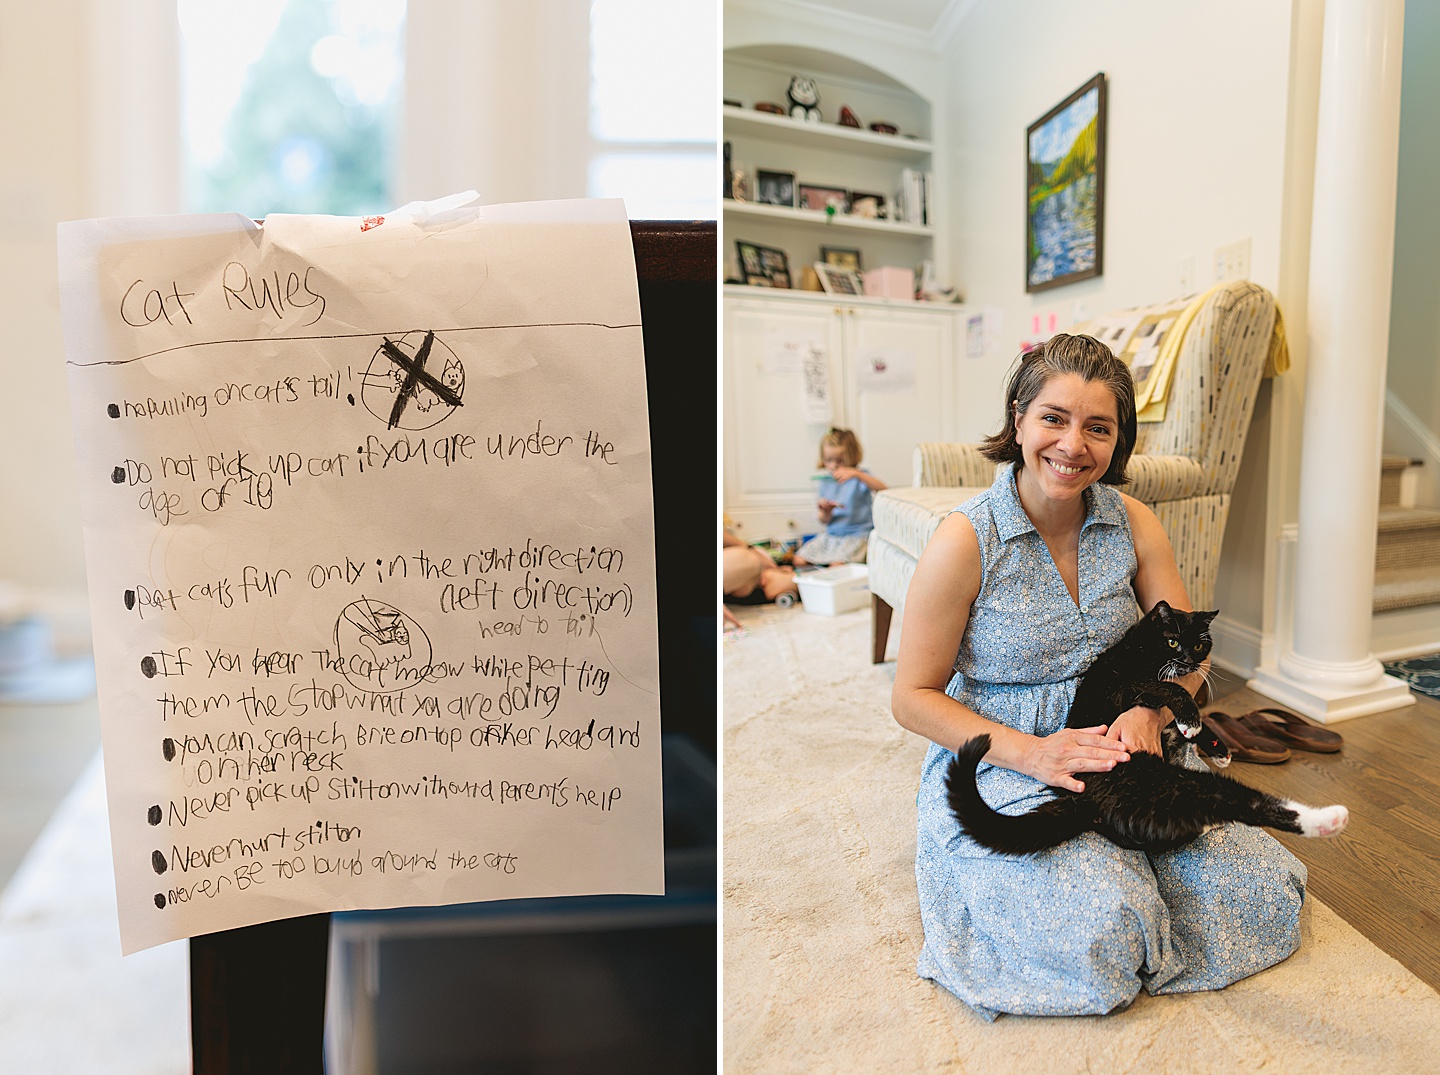 Cat Rules
no pulling on cat's tail!
Do not pick up cat if you are under the
age of 10
pet cat's fur only in the right direction
(left direction)
head to tail
If you hear The cat meow while petting
them the stop what you are doing
you can scratch Brie on top of her head and
on her neck
Never pick up Stilton without a parent's help
Never hurt stilton
never BE too loud around the cats